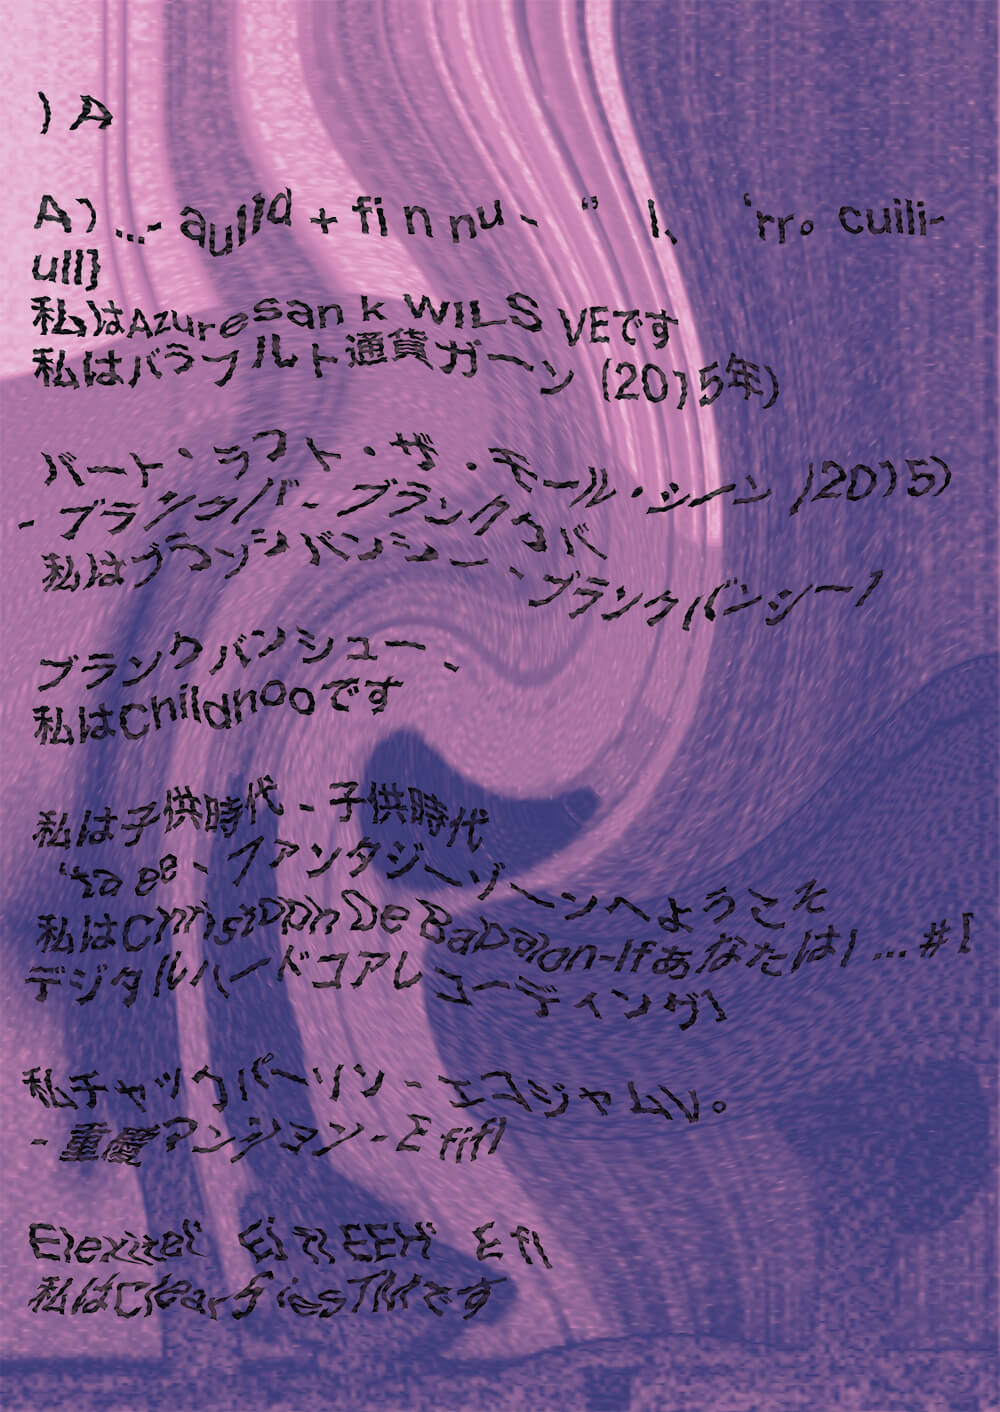 ) A
A) ...- aulld + fi n nu - “ l、 ‘rr。 cuili-
ull}
私はAzuresan k WILS VEです
私はバラフルト通貨ガーン (2015年)
バート・ラフト・ザ・モールル・シーン (2015)
- ブランクバ - ブランククバ
私はブランシバンシー、ブランクバンシー1
ブランクバンシュー、
私はChildhooです
私は子供時代 - 子供時代
‘ta ee - ファンタジーゾーンへようこそ
私はChristoph De Babalon-Ifあなたはl ... # [
デジタルハードコアレコーディング\
私チャックパーソン - エコジャムV。
- 重慶マンション - E fifl
Elexitel‘ Ei 71 EEH‘ E fl
私はClearSkiesTMです